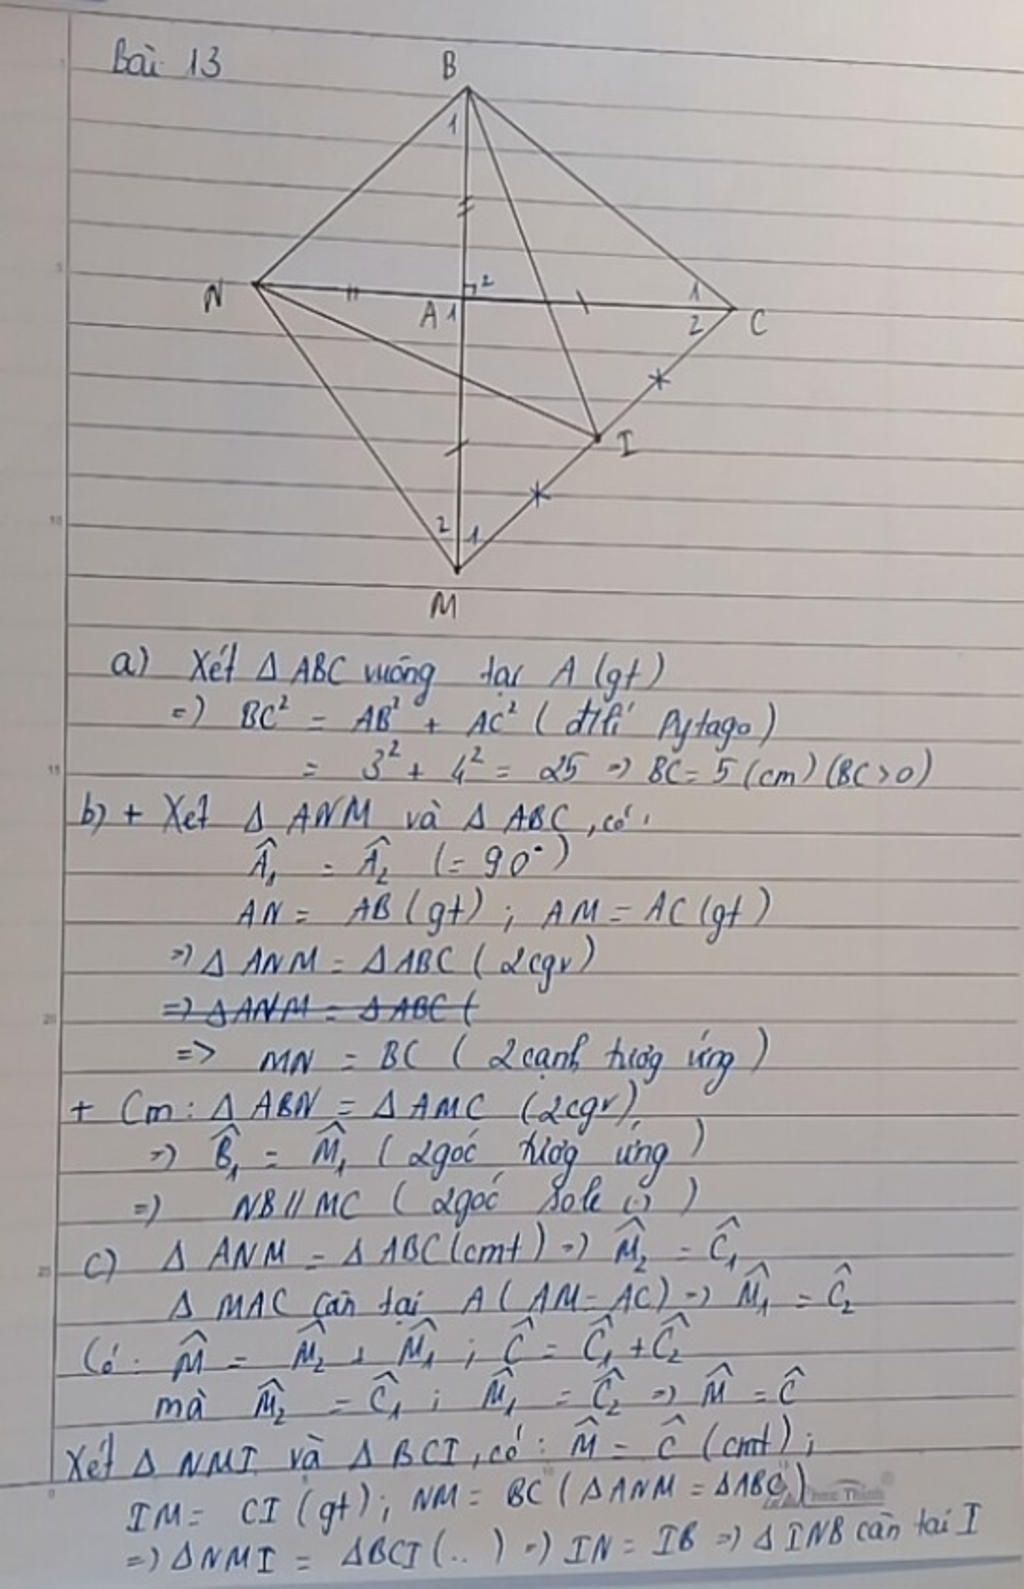 Bài 13
B
1
N
2
A 1
1
2
C
I
2
1
M
a) Xét Δ ABC vuông tại A (gt)
=) BC² = AB² + AC² (đlí Pytago)
= 3² + 4² = 25 => BC = 5 (cm) (BC > 0)
b) + Xét Δ ANM và Δ ABC, có:
Â₁ = Â₂ (= 90°)
AN = AB (gt) ; AM = AC (gt)
=) Δ ANM = Δ ABC (2cgv)
=) Δ ANM = Δ ABC (
=> MN = BC ( 2 cạnh tương ứng )
+ Cm : Δ ABN = Δ AMC (2cgv)
=) B̂₁ = M̂₁ ( 2 góc tương ứng )
=) NB // MC ( 2 góc sole (.) )
c) Δ ANM = Δ ABC (cmt) =) M̂₂ = Ĉ₁
Δ MAC cân tại A ( AM = AC) => M̂₁ = Ĉ₂
Có : M̂ = M̂₂ + M̂₁ ; Ĉ = Ĉ₁ + Ĉ₂
mà M̂₂ = Ĉ₁ ; M̂₁ = Ĉ₂ => M̂ = Ĉ
Xét Δ NMI và Δ BCI, có : M̂ = Ĉ (cmt) ;
IM = CI (gt) ; NM = BC ( Δ ANM = Δ ABC)
=) Δ NMI = Δ BCI (..) =) IN = IB => Δ INB cân tại I